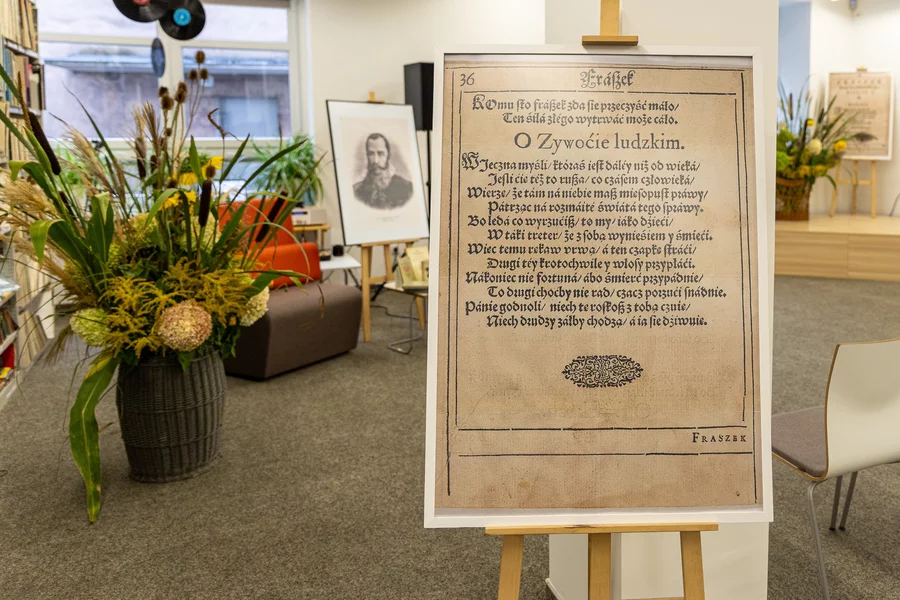 36 Frászek
KOmu sto frászek zda sie przeczyść máło/
Ten siłá złego wytrwáć może cáło.
O Zywoćie ludzkim.
WJeczna myśli/ któraś iest dáley niż od wieká/
Jesli cie też to rusza/ co czásem człowieká/
Wierze/ że tám ná niebie masz miesopust práwy/
Pátrząc ná rozmáite świátá tego spráwy.
Bo leda co wyrzućisz/ to my/ iáko dzieći/
W táki treter/ że z sobą wynieśiem y śmieći.
Wiec temu rekaw vrwą/ á ten czapkę stráći/
Drugi tey krotochwile y włosy przypłáći.
Nákoniec nie fortuná/ ábo śmierć przypádnie/
To drugi choćby nie rad/ czacz porzući snádnie.
Pánie godnoli/ niech tę roskosz z tobą czuie/
Niech drudzy zá łby chodzą/ á ia sie dźiwuię.
FRASZEK